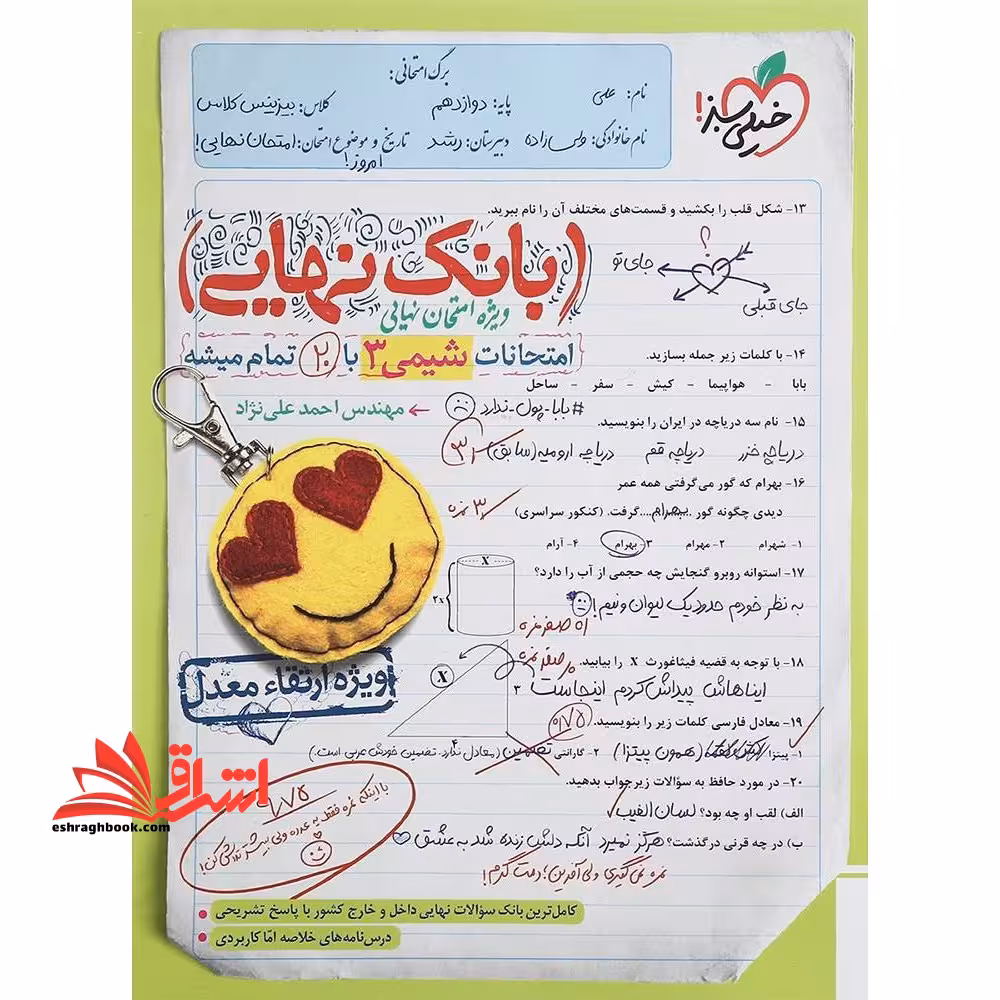 خیلی سبز!
برگ امتحانی:
نام: علی
پایه: دوازدهم
کلاس: بیزینس کلاس
نام خانوادگی: ولی‌زاده
دبیرستان: رشد
تاریخ و موضوع امتحان: امتحان نهایی!
امروز!
۱۳- شکل قلب را بکشید و قسمت‌های مختلف آن را نام ببرید.
؟
جای تو
جای قبلی
(بانک نهایی)
ویژه امتحان نهایی
امتحانات شیمی ۳ با ۲۰ تمام میشه
← مهندس احمد علی‌نژاد
۱۴- با کلمات زیر جمله بسازید.
بابا - هواپیما - کیش - سفر - ساحل
#بابا-پول-ندارد
۱۵- نام سه دریاچه در ایران را بنویسید.
دریاچه خزر دریاچه قم دریاچه ارومیه (سابق)
۱۶- بهرام که گور می‌گرفتی همه عمر
دیدی چگونه گور ...بهرام....گرفت. (کنکور سراسری)
۳ نمره
۱- شهرام ۲- مهرام ۳- بهرام ۴- آرام
۱۷- استوانه روبرو گنجایش چه حجمی از آب را دارد؟
x
۲x
به نظر خودم حدود یک لیوان و نیم!
صفر نمره
۱۸- با توجه به قضیه فیثاغورث X را بیابید.
صفر نمره
X
۳
۴
ایناهاش پیداش کردم اینجاست
ویژه ارتقاء معدل
۱۹- معادل فارسی کلمات زیر را بنویسید.
۰/۷۵
۱- پیتزا (همون پیتزا) ۲- گارانتی تضمین (معادل ندارد. تضمین خودش عربی است.)
۲۰- در مورد حافظ به سؤالات زیر جواب بدهید.
الف) لقب او چه بود؟ لسان الغیب
ب) در چه قرنی درگذشت؟ هرگز نمیرد آنکه دلش زنده شد به عشق
نمره نمی‌گیری ولی آفرین؛ دمت گرم!
با اینکه نمره فقط یه عدده ولی بیشتر تلاش کن!
کامل‌ترین بانک سؤالات نهایی داخل و خارج کشور با پاسخ تشریحی
درس‌نامه‌های خلاصه امّا کاربردی
اشراق
eshraghbook.com